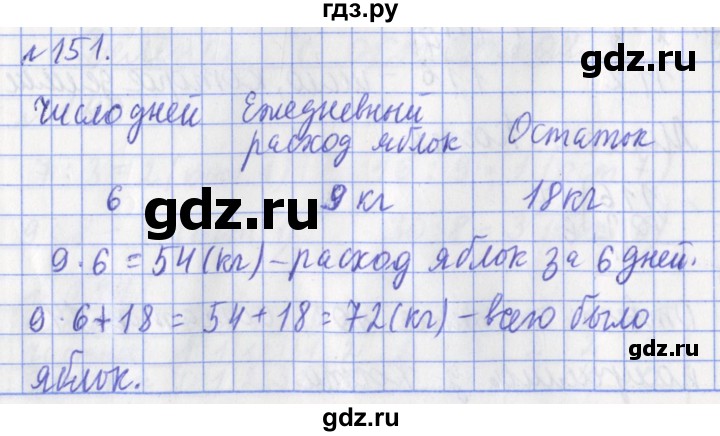 гдз.ру
№151.
Число дней Ежедневный расход яблок Остаток
6 9 кг 18кг
gdz.ru
9·6=54(кг)–расход яблок за 6 дней.
9·6+18=54+18=72(кг)–всего было
яблок.
gdz.ru
gdz.ru
gdz.ru